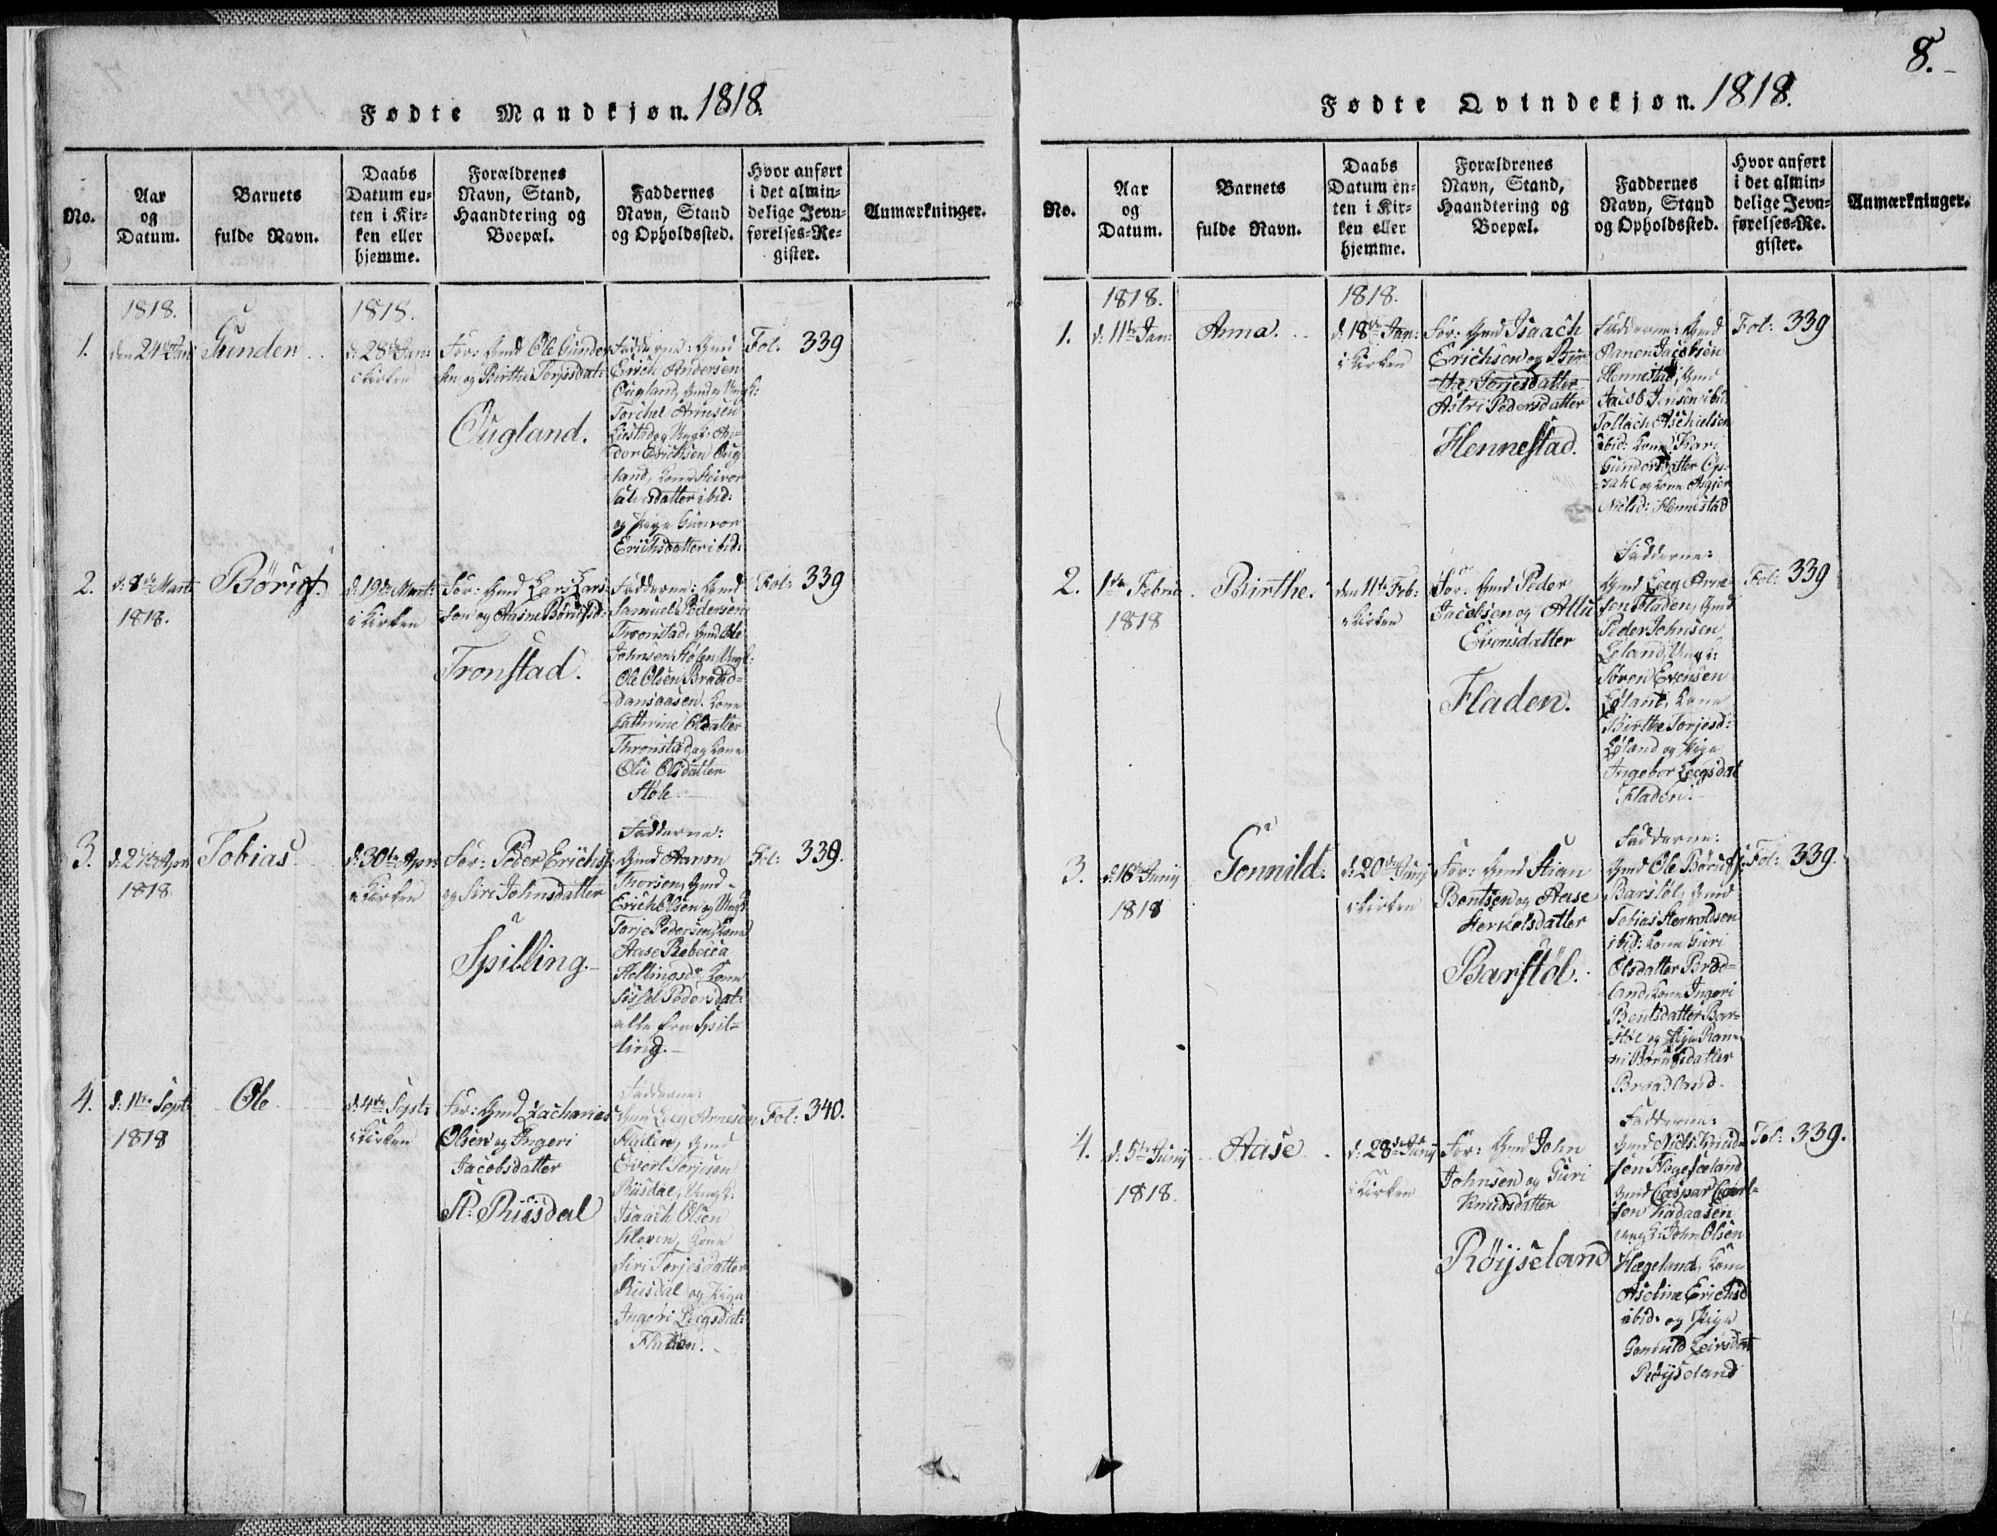 8.
Fødte Mandkjøn. 1818.
No.
Aar
og
Datum.
Barnets
fulde Navn.
Daabs
Datum en-
ten i Kir-
ken eller
hjemme.
Forældrenes
Navn, Stand,
Haandtering og
Boepæl.
Faddernes
Navn, Stand
og Opholdssted.
Hvor anført
i det almin-
delige Jevn-
førelses-Re-
gister.
Anmærkninger.
1.
1818.
den 24de Jan:
Gunder
1818.
d: 28de Jan:
i Kirken
For: Gmd Ole Gunder
sen og Birthe Torjesdat:
Ougland.
Fadderne: Gmd
Erich Andersen
Ougland, Gmd
Torchel Arnesen
Erichsen Oug
land, Kone
datter ibid:
og Pige Gunvor
Erichsdatter ibid:
Fol: 339
2.
d: 8de Mart:
1818.
Børuf.
d: 19de Mart:
i Kirken
For: Gmd Lars Lars-
sen og Børufsd:
Tronstad.
Fadderne: Gmd
Samuel Pedersen
Thronstad, Gmd Ole
Johnsen Støle, Ungk:
Ole Olsen
Kone
Cathrine Olsdatter
Thronstad og Kone
Olu Olsdatter
Støle.
Fol: 339
3.
d: 27de Apr:
1818
Tobias
d: 30te Apr:
i Kirken
For: Peder Erichs:
og Siri Johnsdatter
Spilling.
Fadderne:
Gmd Aanon
Thorsen, Gmd
Erich Olsen og Ungk:
Torje Pedersen, Kone
Aase Rebecca
Kone
Sissel Pedersdat:
alle fra Spil-
ling.
Fol: 339.
4.
d: 1ste Sept:
1818
Ole
d: 4de Sept:
i Kirken
For: Gmd Zacharias
Olsen og Ingeri
Jacobsdatter
St: Riisdal
Fadderne:
Gmd Leeg Arnesen
Fladen, Gmd
Evert Torjesen
Riisdal, Ungk:
Isaach Olsen
Kone
Siri Torjesdatter
Riisdal og Pige
Ingeri Leegsdat:
Fladen.
Fol: 340.
Fødte Qvindekjøn. 1818.
No.
Aar
og
Datum.
Barnets
fulde Navn.
Daabs
Datum en-
ten i Kir-
ken eller
hjemme.
Forældrenes
Navn, Stand,
Haandtering og
Boepæl.
Faddernes
Navn, Stand
og Opholdssted.
Hvor anført
i det almin-
delige Jevn-
førelses-Re-
gister.
Anmærkninger.
1.
1818.
d: 11te Jan:
Anna.
1818.
d: 18de Jan:
i Kirken
For: Gmd Isaach
Erichsen og Bir-
the Torjesdatter
Astri Pedersdatter
Hennestad.
Fadderne: Gmd
Aanon Jacobsen
Hennestad, Gmd
Jacob Jensen ibid:
Tollach Aschielsen
ibid: Kone Kari
Gundersdatter Op-
sahl og Kone Asgjer
Nielsd: Hennestad
Fol: 339
2.
1ste Febru:
1818
Birthe.
den 11te Feb:
i Kirken
For: Gmd Peder
Jacobsen og Allu
Evensdatter
Fladen.
Fadderne:
Gmd Leeg Arne-
sen Fladen, Gmd
Peder Johnsen
Løland, Ungk:
Søren Evensen
Løland, Kone
Birthe Torjesd:
Løland og Pige
Ingebor Leegsdat
Fladen.
Fol: 339
3.
d: 16de Junij
1818
Gonnild.
d: 20de Junij
i Kirken
For: Gmd Stian
Bentsen og Aase
Herkelsdatter
Barstøl.
Fadderne:
Gmd Ole Børufs:
Barstøl, Gmd
Tobias
ibid: Kone Guri
Olsdatter Brød-
land, Kone Ingeri
Bentsdatter Bar-
støl og Pige Ran-
ni Børufsdatter
Braadland.
Fol: 339.
4.
d: 5te Junij
1818.
Aase
d: 28de Junij
i Kirken
For: Gmd John
Johnsen og Guri
Knudsdatter
Røyseland
Fadderne:
Gmd Niels Knud-
sen
Gmd Caspar Carl-
sen
Ungk: John Olsen
Hægeland, Kone
Aseline Erichsd
ibid: og Pige
Gonnild
Røyseland
Fol: 339.